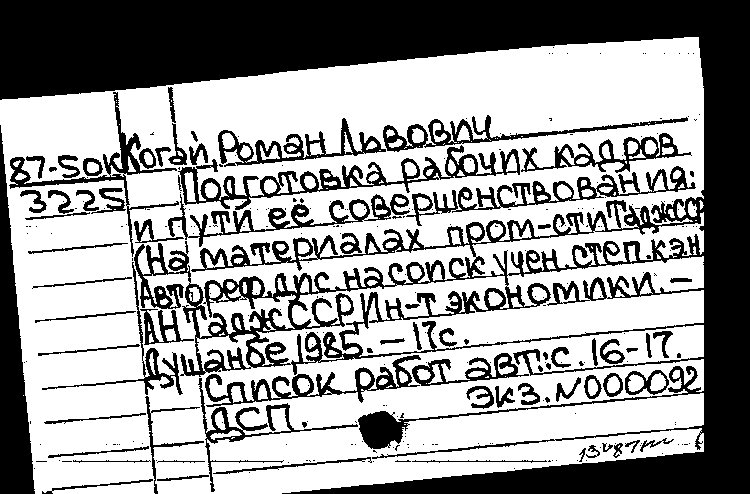 87-50к
3225
Когай, Роман Львович
Подготовка рабочих кадров
и пути её совершенствования:
(На материалах пром-сти ТаджССР)
Автореф. дис. на соиск. учен. степ. кэн.
АН ТаджССР, Ин-т экономики. —
Душанбе, 1985. — 17с.
Список работ авт.: с. 16-17.
ДСП. экз. N000092